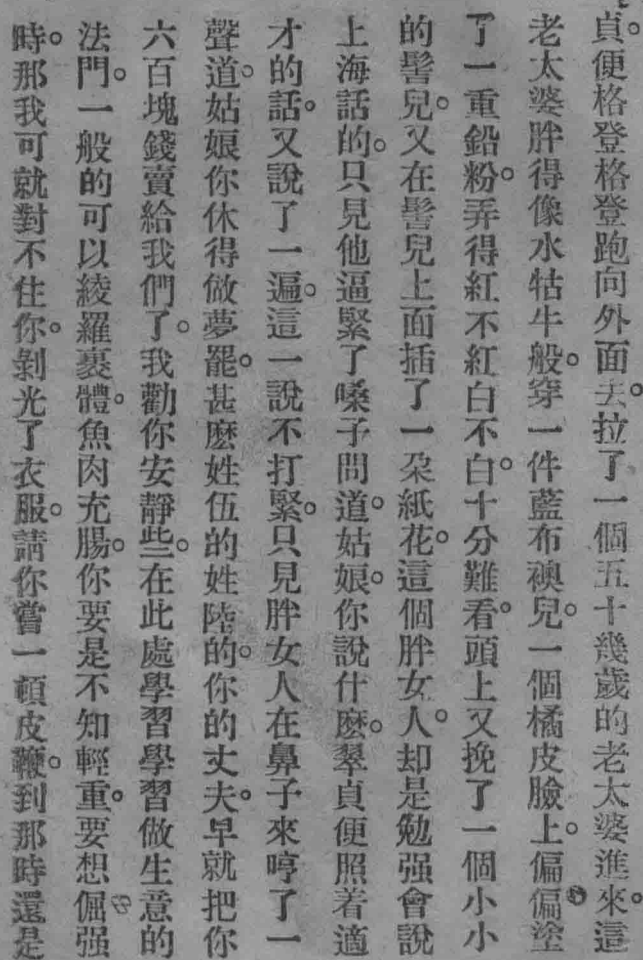 貞。便格登格登跑向外面去。拉了一個五十幾歲的老太婆進來。這
老太婆胖得像水牯牛般。穿一件藍布襖兒。一個橘皮臉上。偏偏塗
了一重鉛粉。弄得紅不紅白不白。十分難看。頭上又挽了一個小小
的髻兒。又在髻兒上面插了一朵紙花。這個胖女人。却是勉强會說
上海話的。只見他逼緊了嗓子問道。姑娘。你說什麽。翠貞便照着適
才的話。又說了一遍。這一說不打緊。只見胖女人在鼻子來哼了一
聲道。姑娘你休得做夢罷。甚麽姓伍的姓陸的。你的丈夫。早就把你
六百塊錢賣給我們了。我勸你安靜些。在此處學習學習做生意的
法門。一般的可以綾羅裹體。魚肉充腸。你要是不知輕重。要想倔强
時。那我可就對不住你。剝光了衣服。請你嘗一頓皮鞭。到那時還是